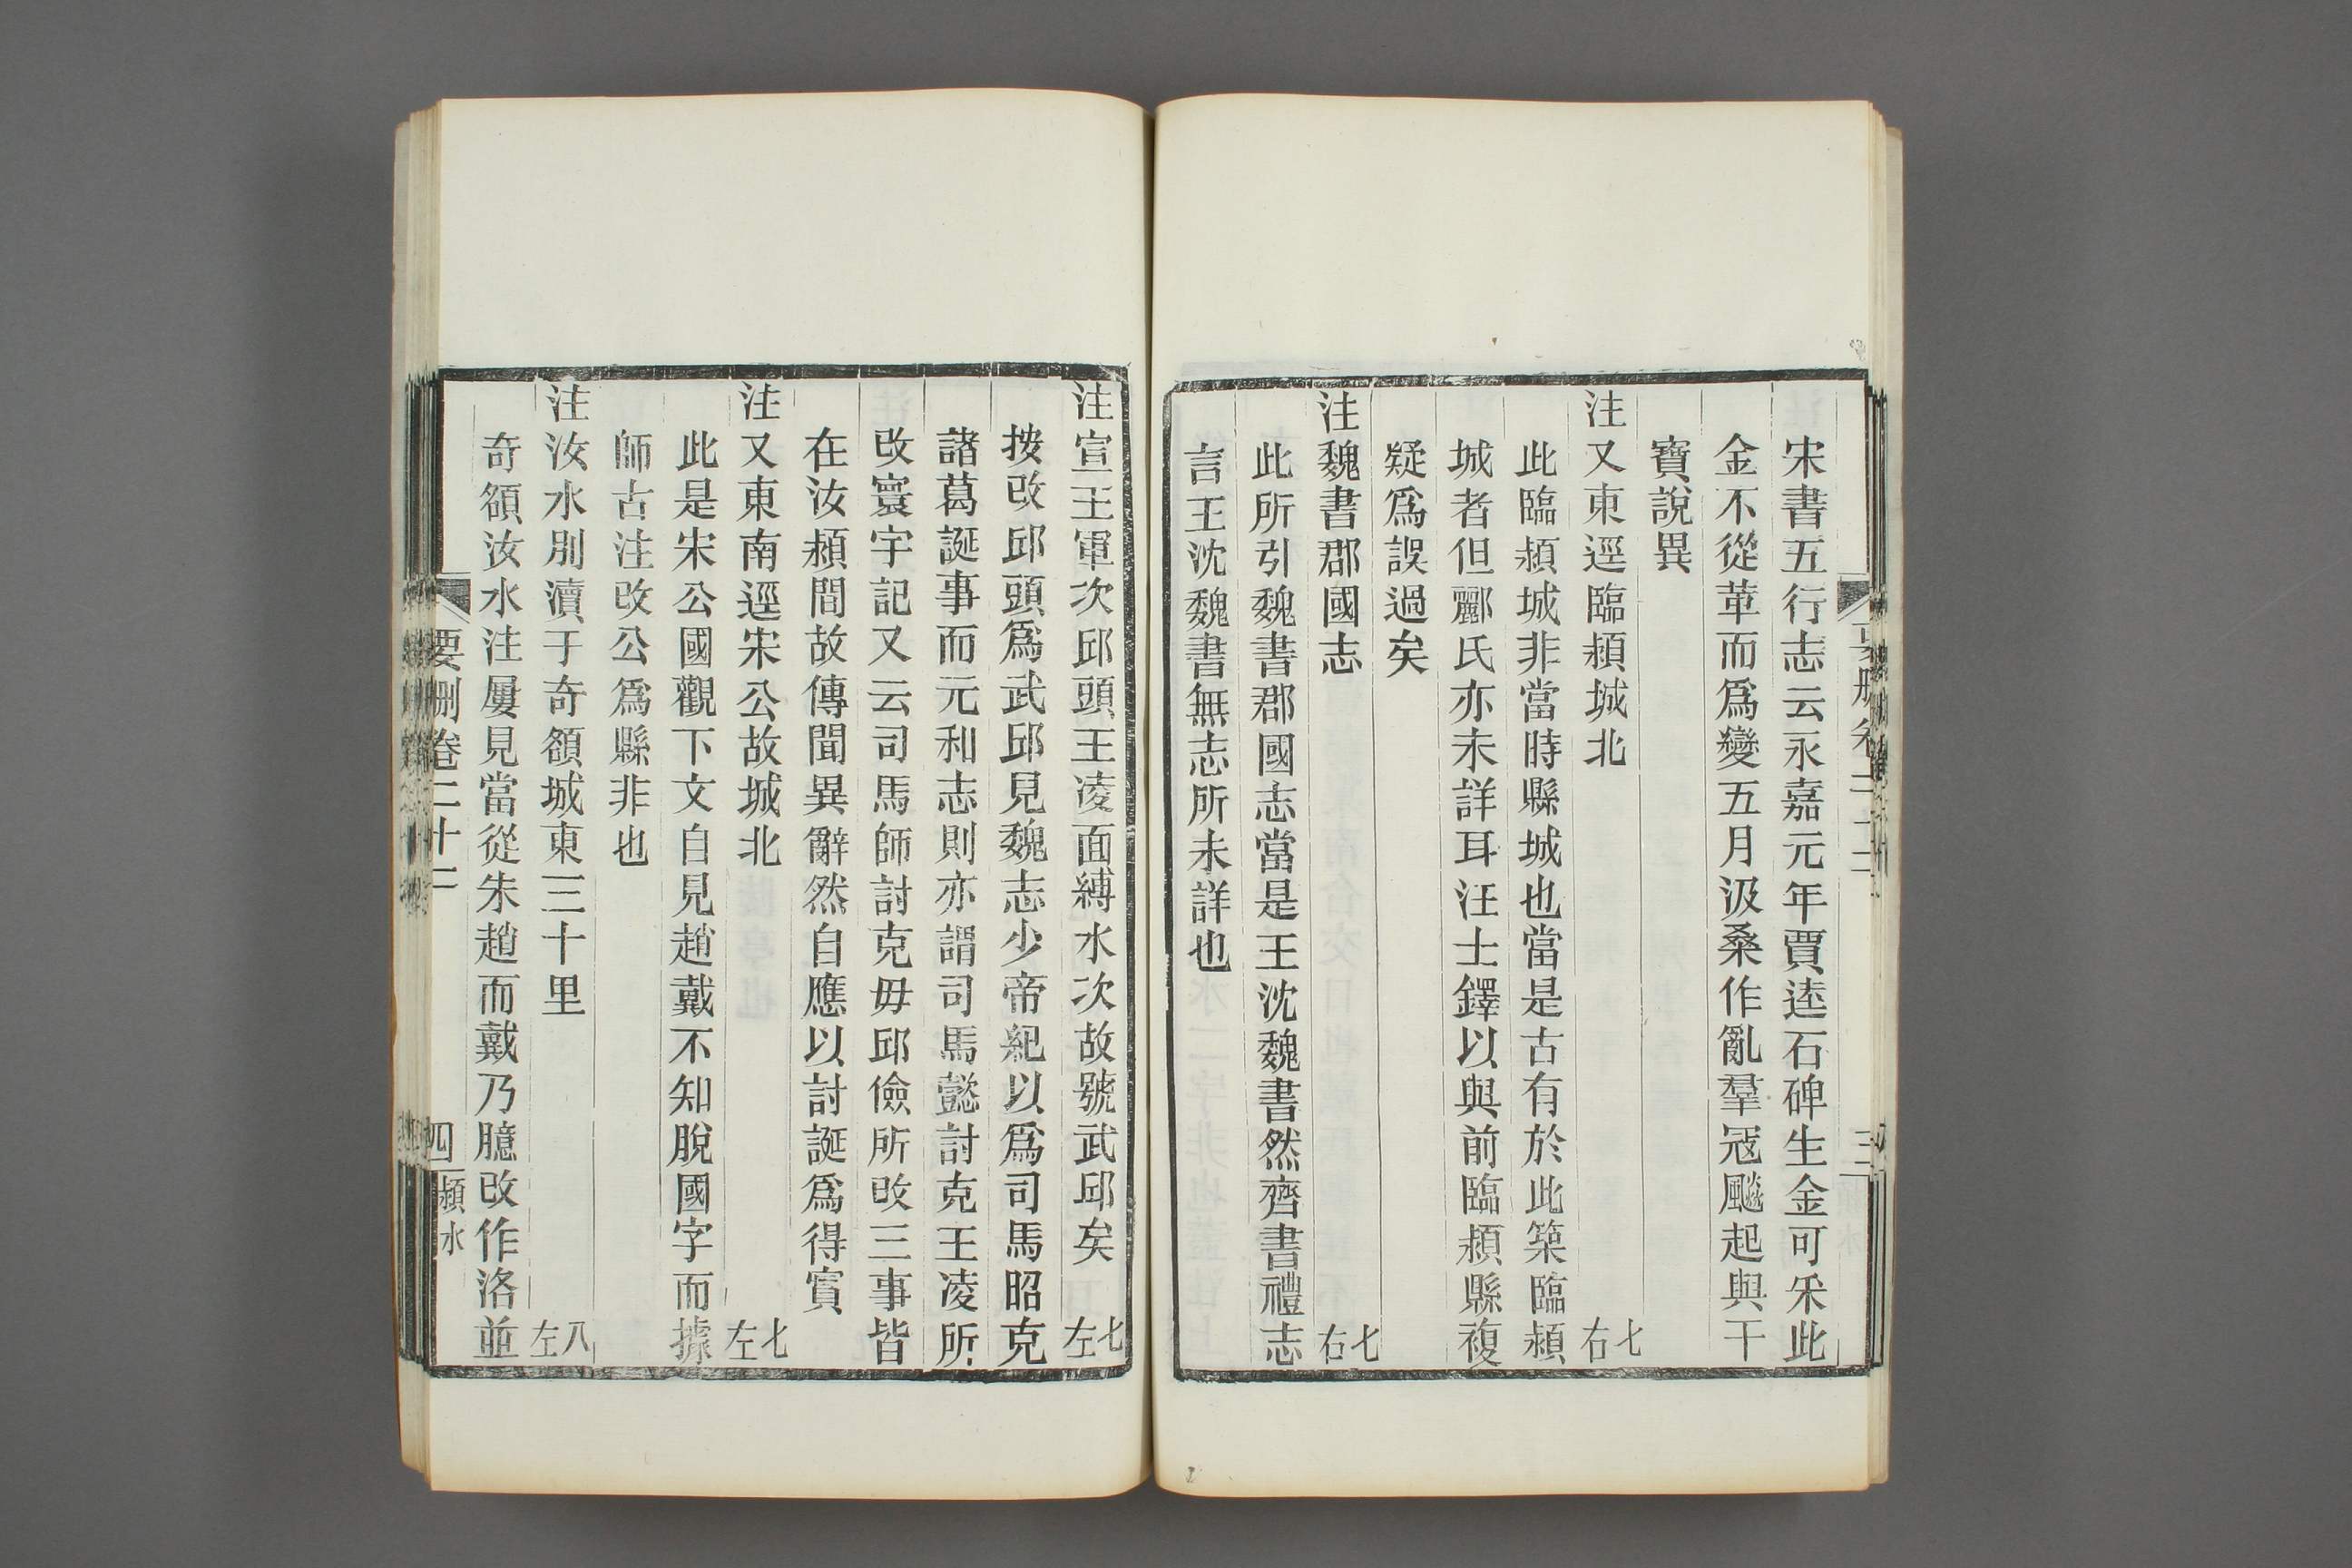 宋書五行志云永嘉元年賈逵石碑生金可采此
金不從革而爲變五月汲桑作亂羣冦飈起與干
寶說異
注又東逕臨潁城北 七右
此臨潁城非當時縣城也當是古有於此築臨潁
城者但酈氏亦未詳耳汪士鐸以與前臨潁縣複
疑爲誤過矣
注魏書郡國志 七右
此所引魏書郡國志當是王沈魏書然齊書禮志
言王沈魏書無志所未詳也
注宣王軍次邱頭王凌面縛水次故號武邱矣 七左
按改邱頭爲武邱見魏志少帝紀以爲司馬昭克
諸葛誕事而元和志則亦謂司馬懿討克王凌所
改寰宇記又云司馬師討克毋邱儉所改三事皆
在汝潁間故傳聞異辭然自應以討誕爲得實
注又東南逕宋公故城北 七左
此是宋公國觀下文自見趙戴不知脫國字而據
師古注改公爲縣非也
注汝水別瀆于奇頟城東三十里 八左
奇頟汝水注屢見當從朱趙而戴乃臆改作洛並
要刪卷二十二 四 潁水